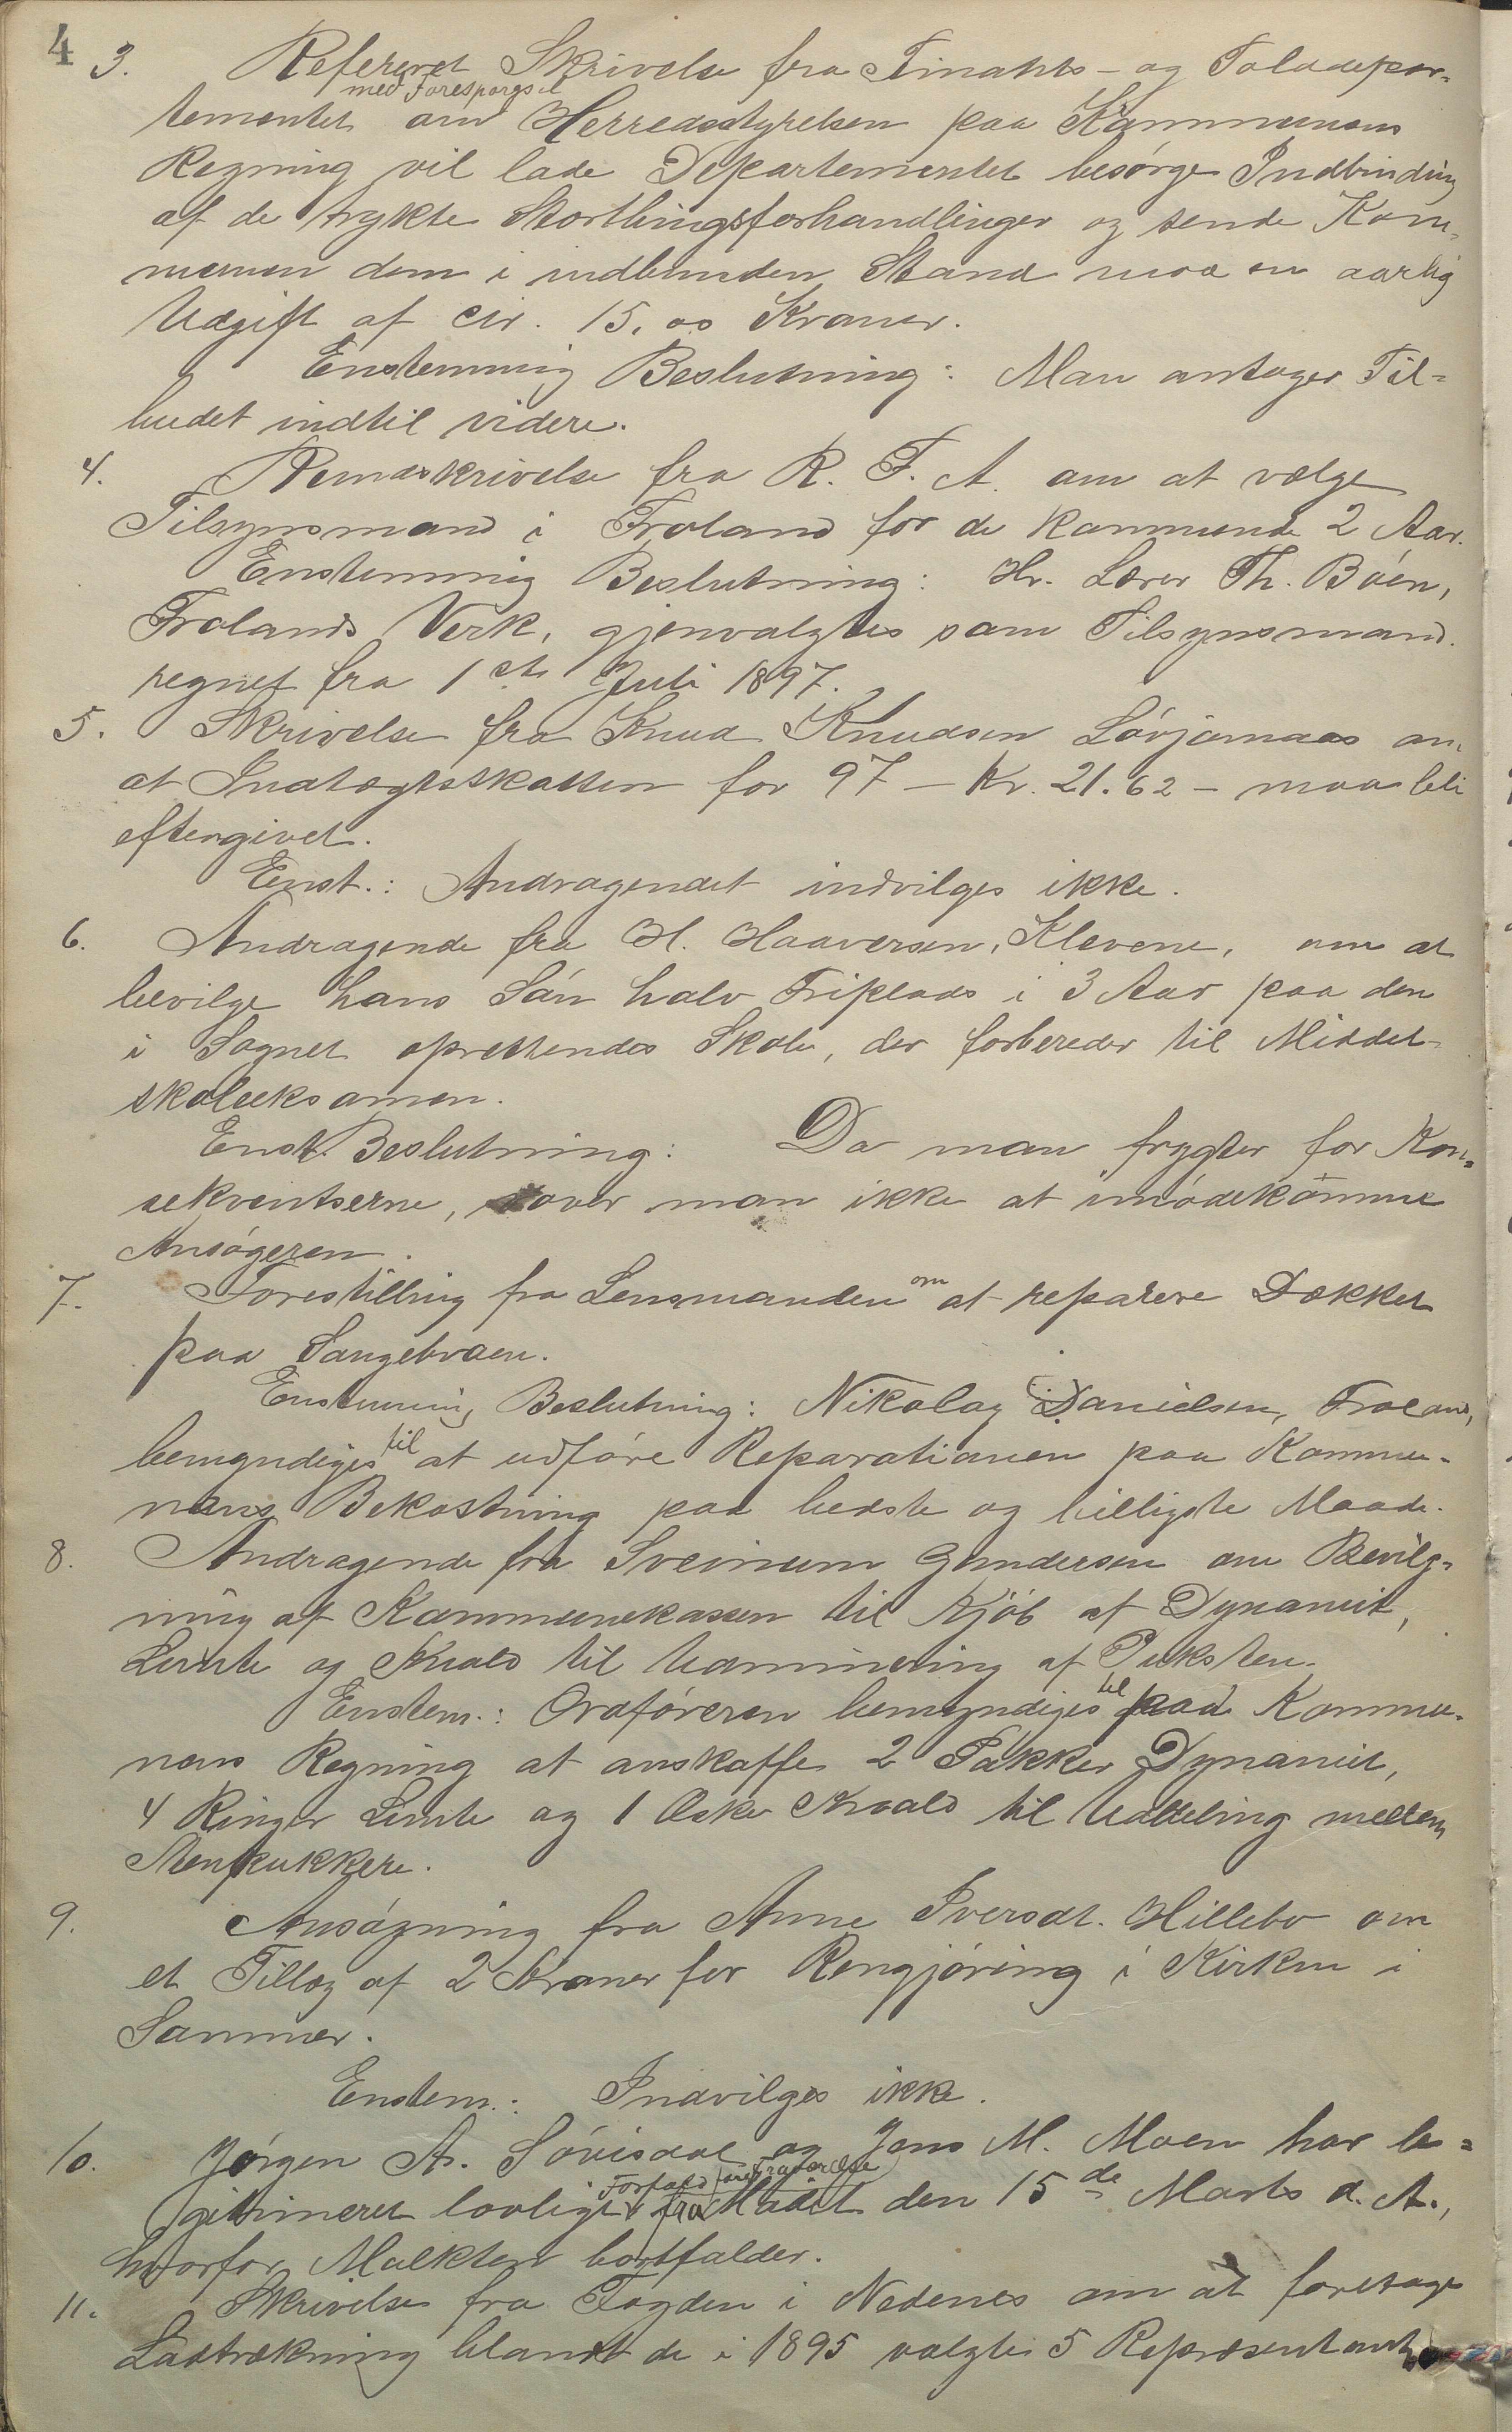 4
3. Refereret Skrivelse fra Finants- og Tolddepar-
med Forespørgsel
tementet om Herredsstyrelsen paa Kommunens
Regning vil lade Departementet besørge Indbinding
af de trykte Storthingsforhandlinger og sende Kom-
munen dem i indbunden Stand mod en aarlig
Udgift af cir. 15,00 Kroner.
Enstemmig Beslutning: Man antager Til-
budet indtil videre.
4. Rundskrivelse fra R. F. A. om at vælge
Tilsynsmand i Froland for de kommende 2 Aar.
Enstemmig Beslutning: Hr. Lærer Th. Bøen,
Frolands Verk, gjenvalgtes som Tilsynsmand
regnet fra 1ste Juli 1897.
5. Skrivelse fra Knud Knudsen Løvjomaas om
at Indtægtsskatten for 97 – Kr. 21.62 – maa bli
eftergivet.
Enst.: Andragendet indvilges ikke.
6. Andragende fra H. Haaversen, Klevene, om at
bevilge hans Søn halv Friplads i 3 Aar paa den
i Sognet oprettendes Skole, der forbereder til Middel-
skoleeksamen.
Enst. Beslutning: Da man frygter for Kon-
sekventserne, vover man ikke at imødekomme
Ansøgeren.
7. Forestilling fra Lensmanden om at reparere Dækket
paa Songebroen.
Enstemmig Beslutning: Nikolay Danielsen, Froland,
bemyndiges til at udføre Reparationen paa Kommu-
nens Bekostning paa bedste og billigste Maade.
8. Andragende fra Sveinum Gundersen om Bevilg-
ning af Kommunekassen til Kjøb af Dynamit,
Lunte og Knald til Udminering af Puksten.
Enstem.: Ordføreren bemyndiges til paa Kommu-
nens Regning at anskaffe 2 Pakker Dynamit,
4 Ringer Lunte og 1 Æske Knald til Uddeling mellem
Stenpukkere.
9. Ansøgning fra Anne Iversdt. Hillebo om
et Tillæg af 2 Kroner for Rengjøring i Kirken i
Sommer.
Enstem.: Indvilges ikke.
10. Jørgen A. Løvisdal og Jens M. Moen har le-
Forfald fraværelse
gitimeret lovligt fra Mødet den 15de Marts d. A.,
hvorfor Mulkten bortfalder.
11. Skrivelse fra Fogden i Nedenes om at foretage
Lodtrækning blandt de i 1895 valgte 5 Repræsentanter